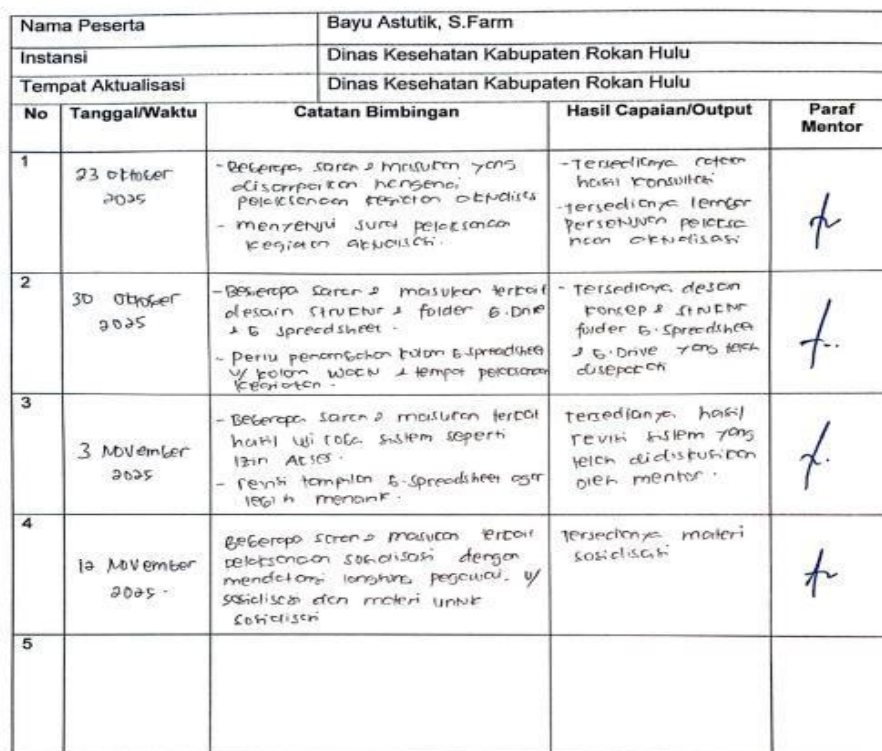 Nama Peserta Bayu Astutik, S.Farm
Instansi Dinas Kesehatan Kabupaten Rokan Hulu
Tempat Aktualisasi Dinas Kesehatan Kabupaten Rokan Hulu
No Tanggal/Waktu Catatan Bimbingan Hasil Capaian/Output Paraf Mentor
1
23 Oktober
2025
- Beberapa saran & masukan yang
disampaikan mengenai
pelaksanaan kegiatan aktualisasi
- menyetujui surat pelaksanaan
kegiatan aktualisasi.
- Tersedianya catatan
hasil konsultasi
- Tersedianya lembar
persetujuan pelaksa
naan aktualisasi
2
30 Oktober
2025
- Beberapa saran & masukan terkait
desain struktur & folder G.Drive
& G spreadsheet.
- Perlu penambahan kolom G.spreadsheet
u/ kolom waktu & tempat pelaksanaan
kegiatan.
- Tersedianya desain
konsep & struktur
folder G.Spreadsheet
& G.Drive yang telah
disepakati
3
3 November
2025
- Beberapa saran & masukan terkait
hasil uji coba sistem seperti
izin Akses.
- revisi tampilan G.spreadsheet agar
lebih menarik.
Tersedianya hasil
revisi sistem yang
telah didiskusikan
oleh mentor.
4
12 November
2025.
Beberapa saran & masukan terkait
pelaksanaan sosialisasi dengan
mendatangi langsung pegawai. u/
sosialisasi dan materi untuk
sosialisasi
Tersedianya materi
sosialisasi
5